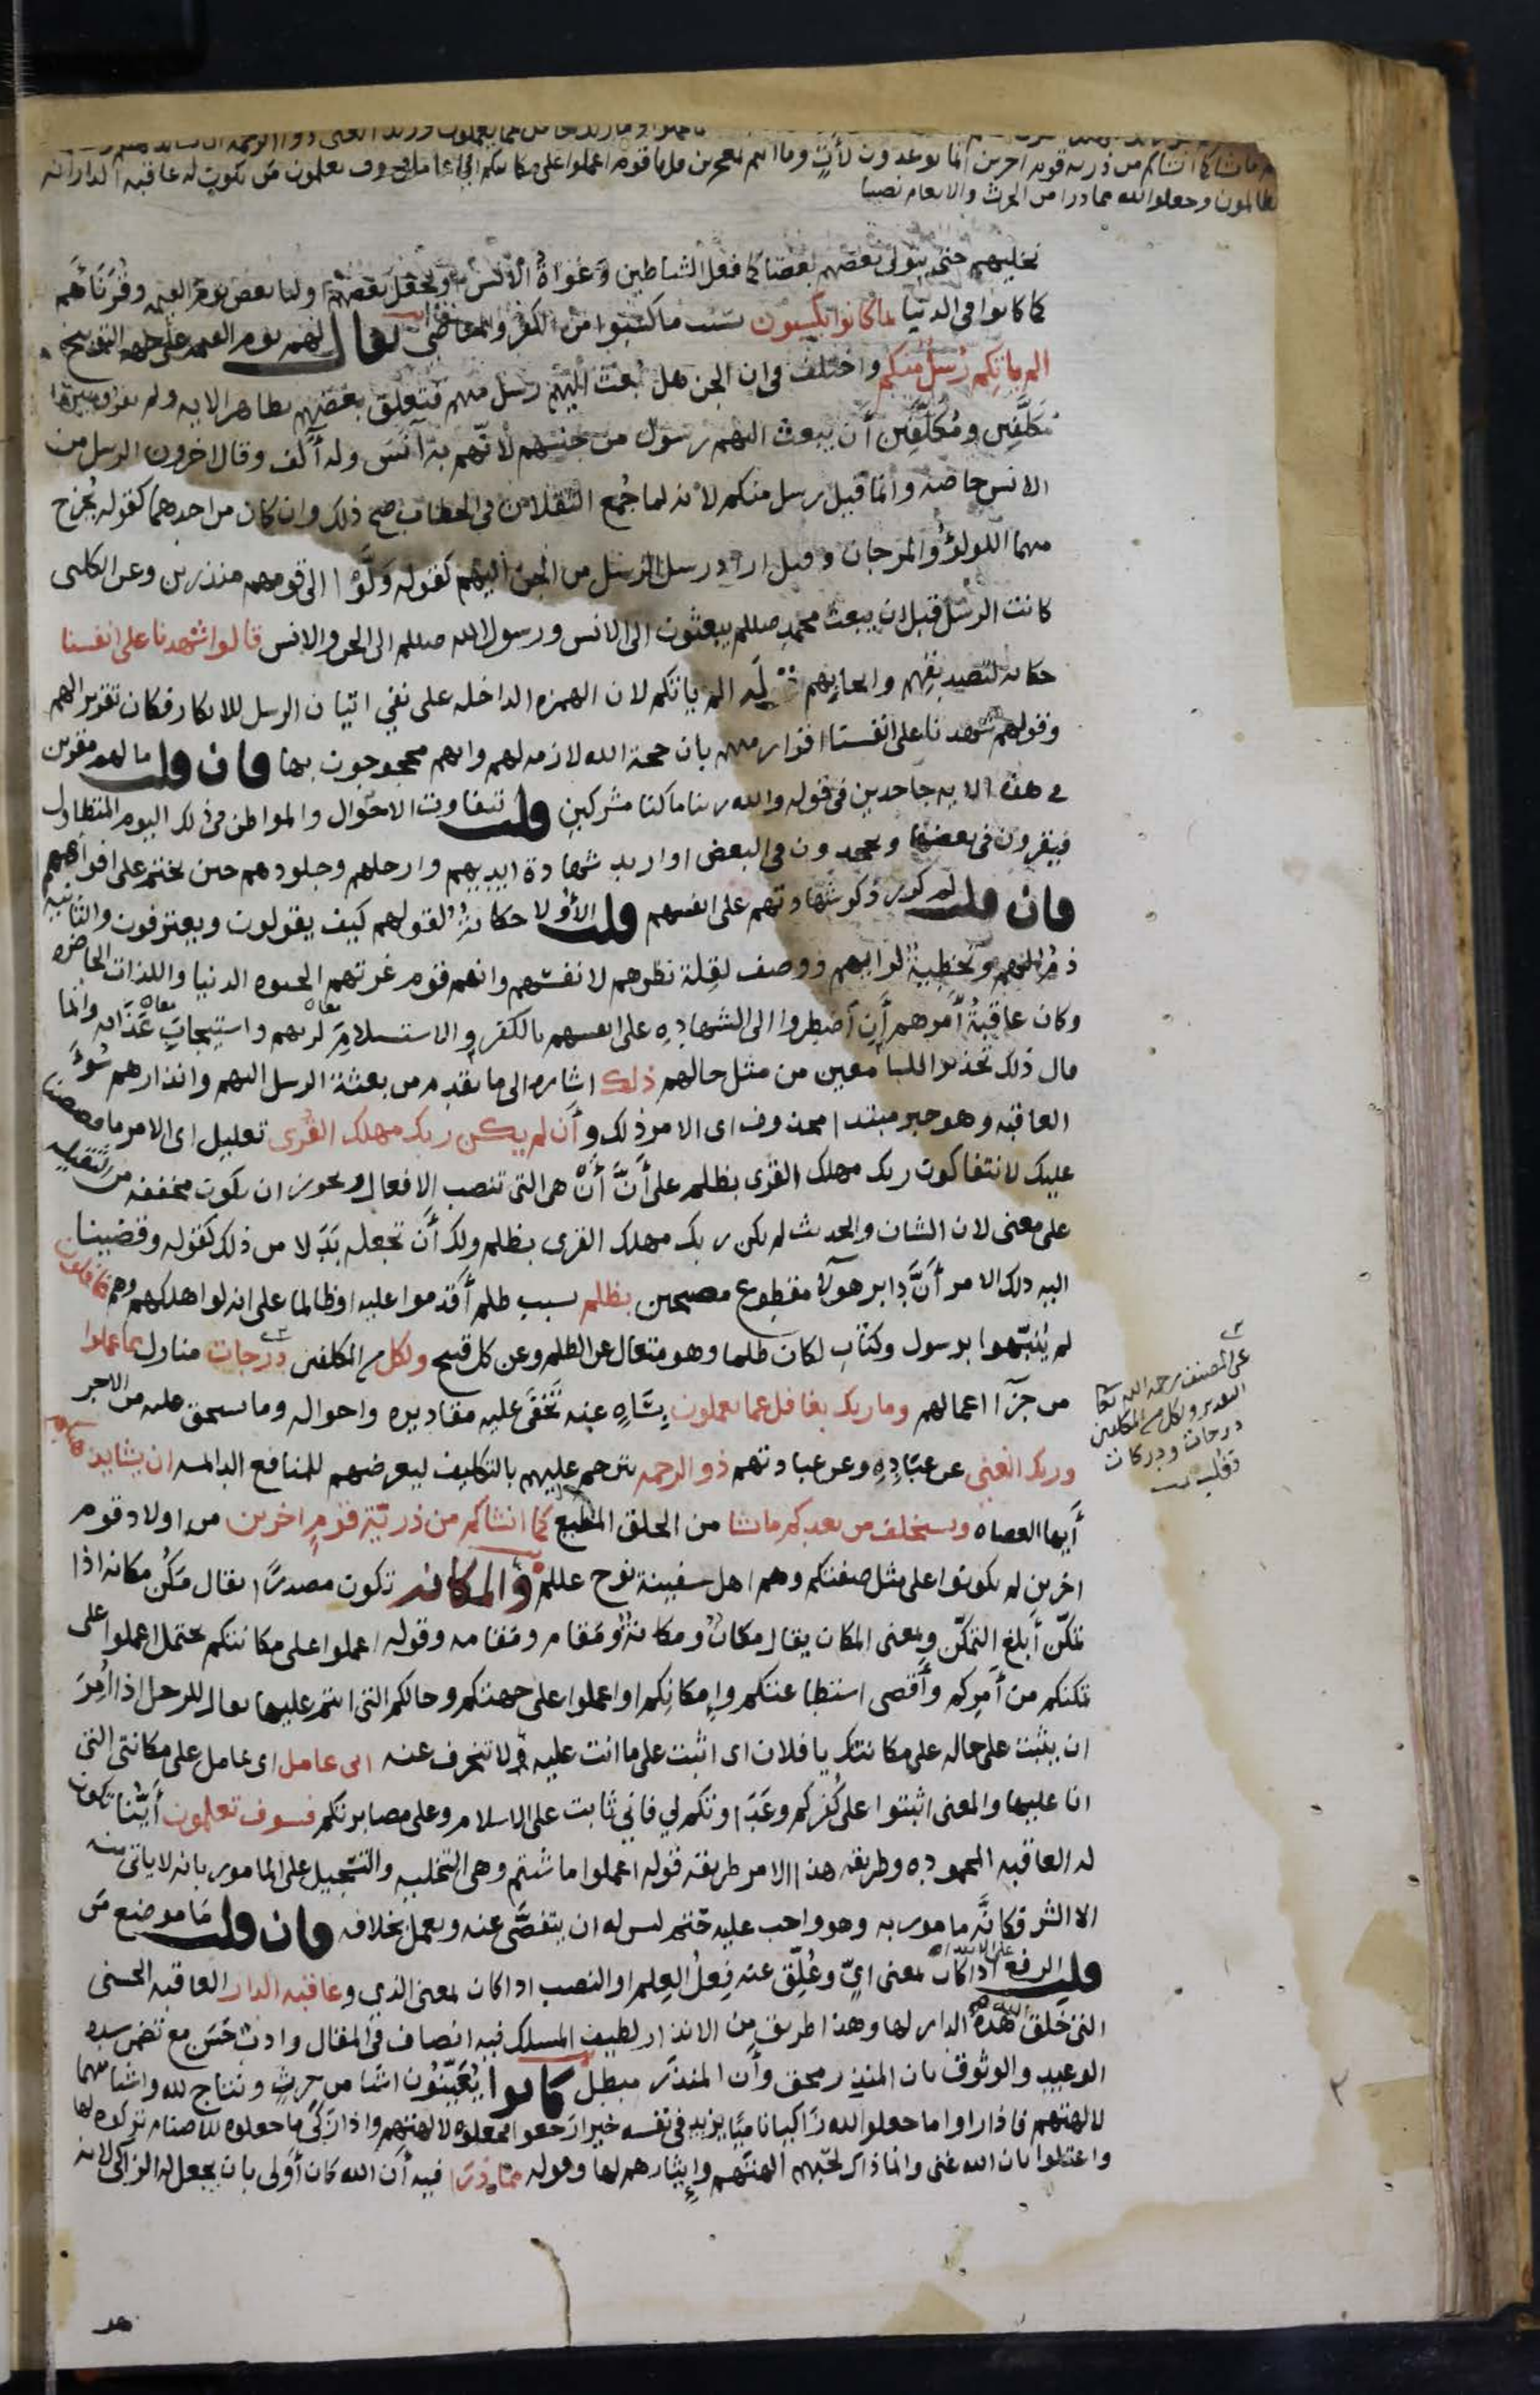 ما يشا كما انشاكم من ذريه قوم اخرين انما توعدون لآتٍ وما انتم بمعجزين قل يا قوم اعملوا على مكانتكم اني عامل فسوف تعلمون من تكون له عاقبه الدار انه
الظالمون وجعلوا لله مما ذرا من الحرث والانعام نصيبا
نخليهم حتى يتولى بعضهم بعضا كما فعل الشياطين وغواة الانس او نجعل بعضهم اوليا بعض يوم القيمه وقرناهم
كما كانوا في الدنيا بما كانوا يكسبون بسبب ما كسبوا من الكفر والمعاصي يقال لهم يوم القيمه على جهه التوبيخ
الم ياتكم رسل منكم واختلف في ان الجن هل بعث اليهم رسل منهم فتعلق بعضهم بظاهر الايه ولم يفرق بين
مكلَّفين ومُكلَّفين أن يبعث اليهم رسول من جنسهم لانّهم به آنَس وله آلَف وقال اخرون الرسل من
الانس خاصه وانما قيل رسل منكم لانه لما جُمع الثقلان في الخطاب صح ذلك وان كان من احدهما كقوله يُخرج
منهما اللولؤُ والمرجان وقيل اراد رسل الرسل من الجن اليهم كقوله ولَّوْا الى قومهم منذرين وعن الكلبى
كانت الرسل قبل ان يبعث محمد صللم يبعثون الى الانس ورسول الله صللم الى الجن والانس قالوا شهدنا على انفسنا
حكايه لتصديقهم وايجابهم لِـه الم ياتكم لان الهمزه الداخله على نفي اتيان الرسل للانكار فكان تقريرا لهم
وقولهم شهدنا على انفسنا اقرار منهم بان حجة الله لازمه لهم وانهم محجوجون بها فان قلت ما لهم مقرين
في هذه الايه جاحدين في قوله والله ربنا ما كنا مشركين قلت تتفاوت الاحوال والمواطن في ذلك اليوم المتطاول
فيقرون في بعضها ويجحدون في البعض او اريد شهادة ايديهم وارجلهم وجلودهم حين يختم على افواههم
فان قلت لم كرر ذكر شهادتهم على انفسهم قلت الأولا حكايةٌ لقولهم كيف يقولون ويعترفون والثانيه
ذمٌّ لهم وتخطيةٌ لرايهم ووصف لقلة نظرهم لانفسهم وانهم قوم غرتهم الحيوه الدنيا واللذات الحاضره
وكان عاقبةُ أمرهم أن أضطروا الى الشهاده على انفسهم بالكفر والاستسلام لربهم واستيجاب عذابه وانما
قال ذلك تحذيرا للسامعين من مثل حالهم ذلك اشاره الى ما تقدم من بعثة الرسل اليهم وانذارهم سُوءَ
العاقبه وهو خبر مبتدا محذوف اى الامر ذلك وأن لم يكن ربك مهلك القرى تعليل اى الامر ما قصصنا
عليك لانتفا كون ربك مهلك القرى بظلم على أنّ أنْ هي التى تنصب الافعال ويجوز ان يكون مخففه من الثقيله
على معنى لان الشان والحديث لم يكن ربك مهلك القرى بظلم ولك أن تجعله بَدَلا من ذلك كقوله وقضينا
اليه ذلك الامر أنَّ دابر هولآء مقطوع مصبحين بظلم بسبب ظلم أقدموا عليه او ظالما على انه لو اهلكهم وهم غافلون
لم يُنبّهوا برسول وكتاب لكان ظلما وهو متعال عن الظلم وعن كل قبيح ولكل من المكلفين درجات منازل مما عملوا
من جزآء اعمالهم وما ربك بغافل عما يعملون بساهٍ عنه تَخفَى عليه مقاديره واحواله وما يستحق عليه من الاجر
وربك الغنى عن عبَادِهِ وعن عبادتهم ذو الرحمه يترحم عليهم بالتكليف ليعرضهم للمنافع الدائمه ان يشا يذهبكم
أيها العصاه ويستخلف من بعدكم ما يشا من الخلق المطيع كما انشاكم من ذريّة قومٍ اخرين من اولاد قوم
اخرين لم يكونوا على مثل صفتكم وهم اهل سفينة نوح عللم والمكانه تكون مصدرًا يقال مَكُن مكانه اذا
تمكّن أبلغ التمكّن وبمعنى المكان يقال مكانٌ ومكانةٌ ومقام ومقامه وقوله اعملوا على مكانتكم يحتمل اعملوا على
تمكنكم من أمركم وأقصى استطاعتكم وإمكانِكم او اعملوا على جهتكم وحالكم التى انتم عليها يقال للرجل اذا أُمِرَ
ان يثبت على حاله على مكانتك يا فلان اى اثبت على ما انت عليه ولا تنحرف عنه انى عامل اى عامل على مكانتى التى
انا عليها والمعنى اثبتوا على كُفركم وعَدَاوتكم لي فاني ثابت على الاسلام وعلى مصابرتكم فسوف تعلمون أيّنا تكون
له العاقبه المحموده وطريقه هذا الامر طريقه قوله اعملوا ما شئتم وهى التخليه والتسجيل على المامور بانه لا ياتى منه
الا الشر فكانّه مامور به وهو واجب عليه حَتْم ليس له ان يتفصَّى عنه ويعمل بخلافه فان قلت مَا موضع مَن
قلت الرفع اذا كان بمعنى ايّ وعُلِّق عنه فِعلُ العِلم او النصب اذا كان بمعنى الذى وعاقبه الدار العاقبه الحسنى
التى خَلق الله هذه الدار لها وهذا طريق من الانذار لطيف المسلك فيه انصاف في المقال وادب حَسَن مع تضمن شده
الوعيد والوثوق بان المنذِر محق وأن المنذَر مبطل كانوا يُعَيّنون اشيا من حرث ونتاج لله واشيا منهما
لالهتهم فاذا راوا ما جعلوا لله زاكيا ناميًا يزيد في نفسه خيرا رَجعوا فجعلوه لالهتهم واذا زكى ما جعلوه للاصنام تركوه لها
واعتلوا بان الله غنى وانما ذاك لحبّهم الهتهم وإيثارهم لها وقوله ممّا ذرَا فيه أن الله كان أولى بان يجعل له الزاكى لانه
عن المصنف رحمه الله تعا
التقدير ولكل من المكلفين
درجات ودركات
فغلب